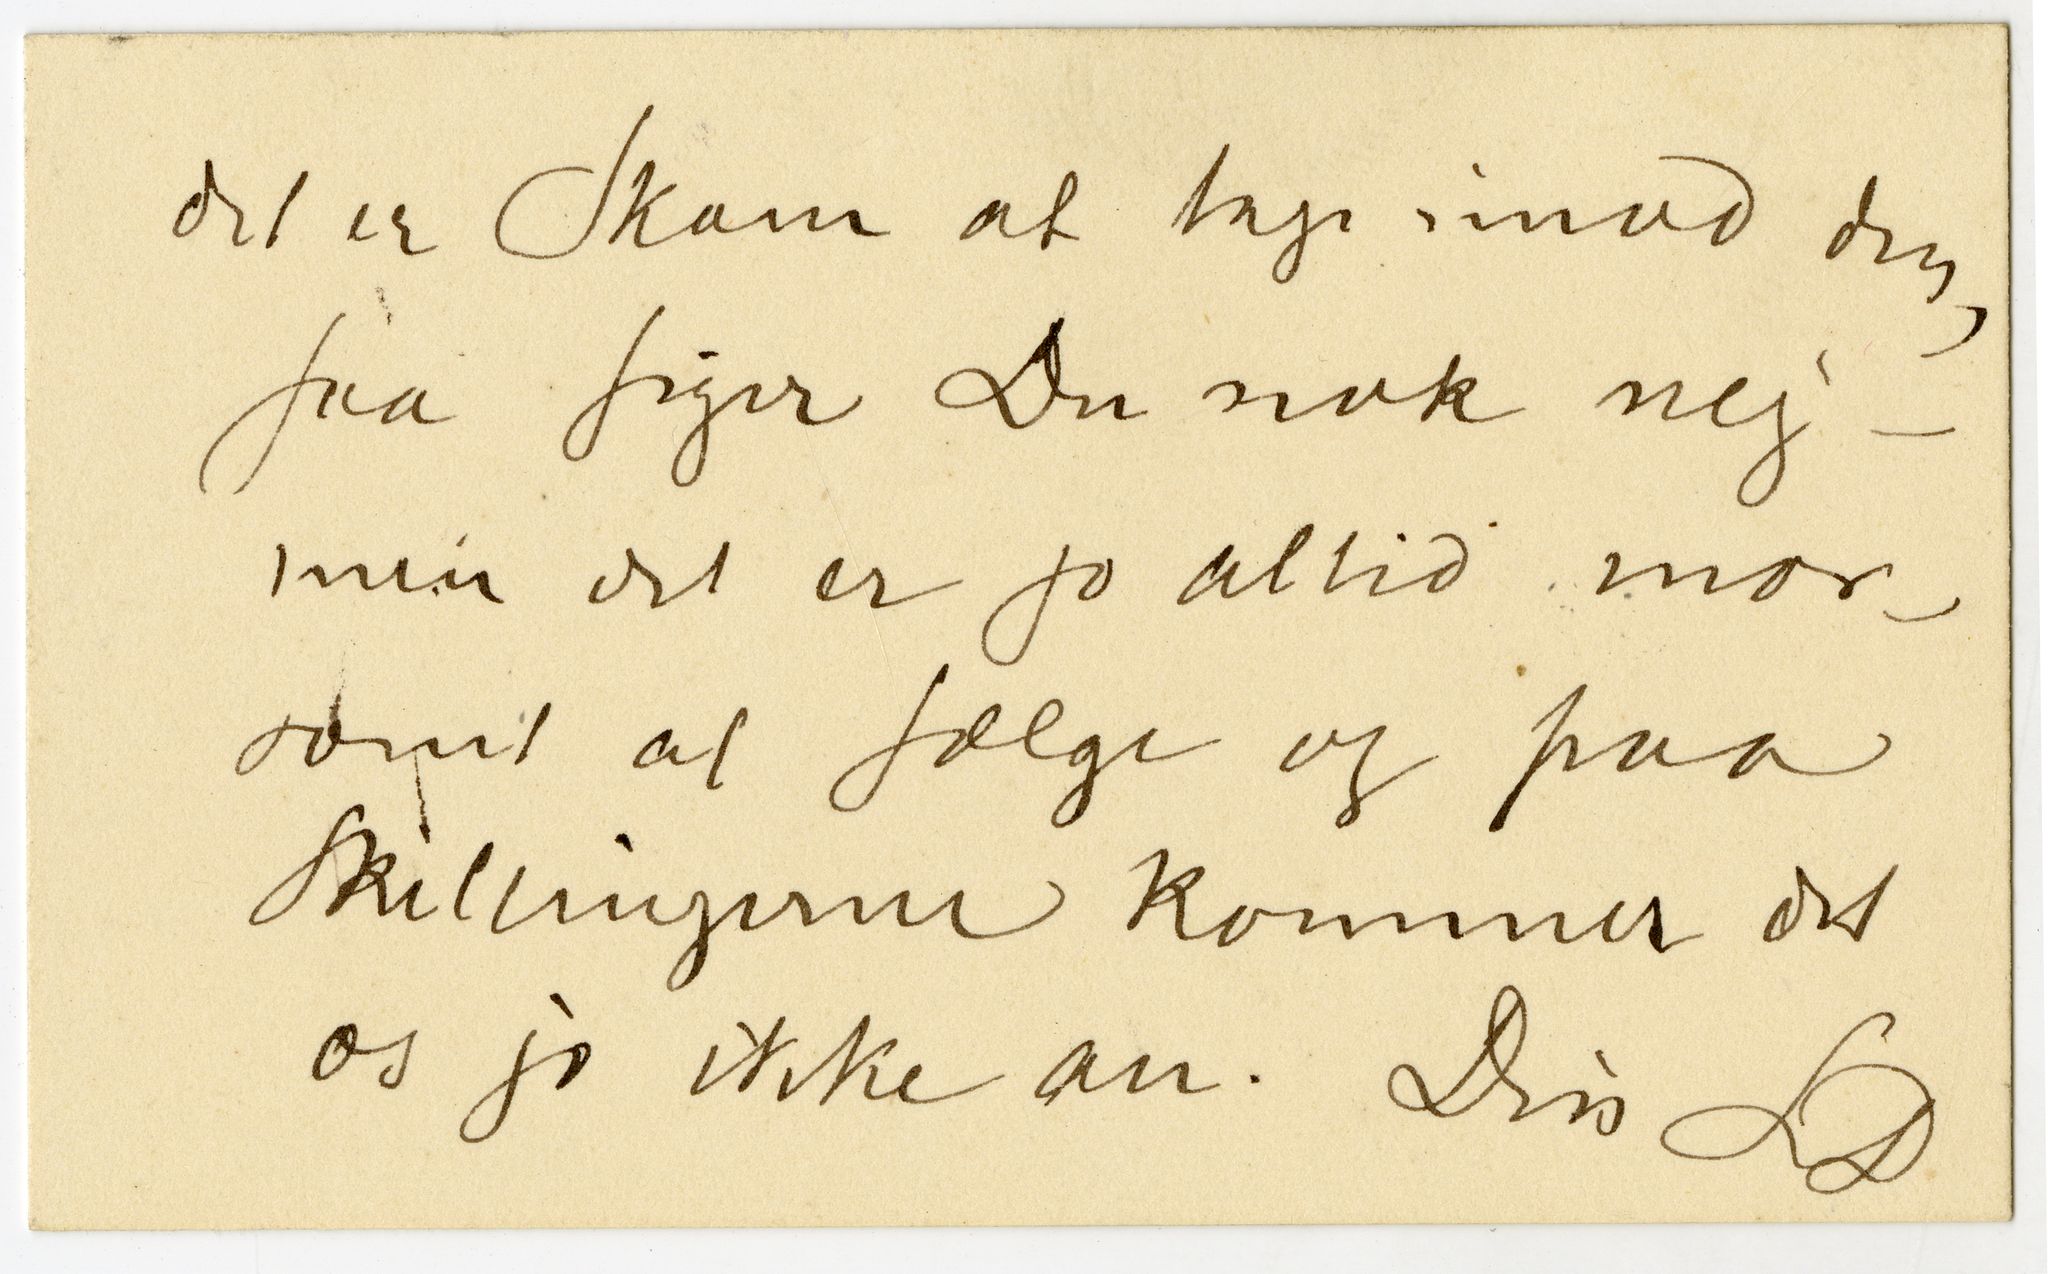 det er Skam at tage imod den,
saa siger Du nok nej –
men det er jo altid mor-
somt at sælge og paa
Skillingerne kommer det
os jo ikke an. Din LP